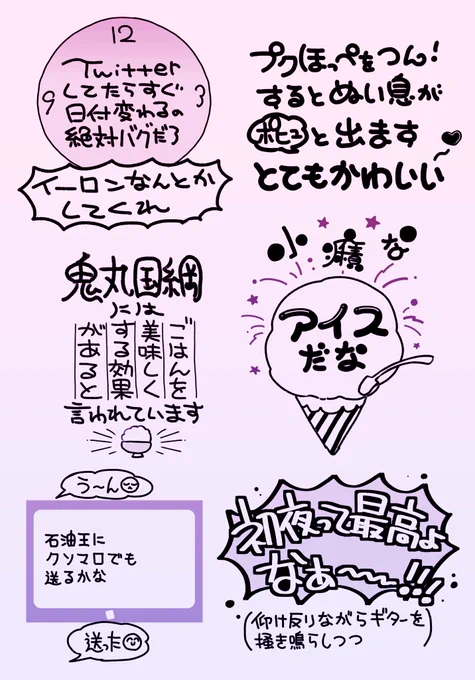 12
9
3
Twitter
してたらすぐ
日付変わるの
絶対バグだろ
イーロンなんとか
してくれ
プクほっぺをつん!
するとぬい息が
ポヒュと出ます
とてもかわいい
鬼丸国綱
には
ごはんを
美味しく
する効果
があると
言われています
小癪な
アイス
だな
う〜ん
石油王に
クソマロでも
送るかな
送った
初夜って最高よ
なぁ〜〜!!!
(仰け反りながらギターを
掻き鳴らしつつ)